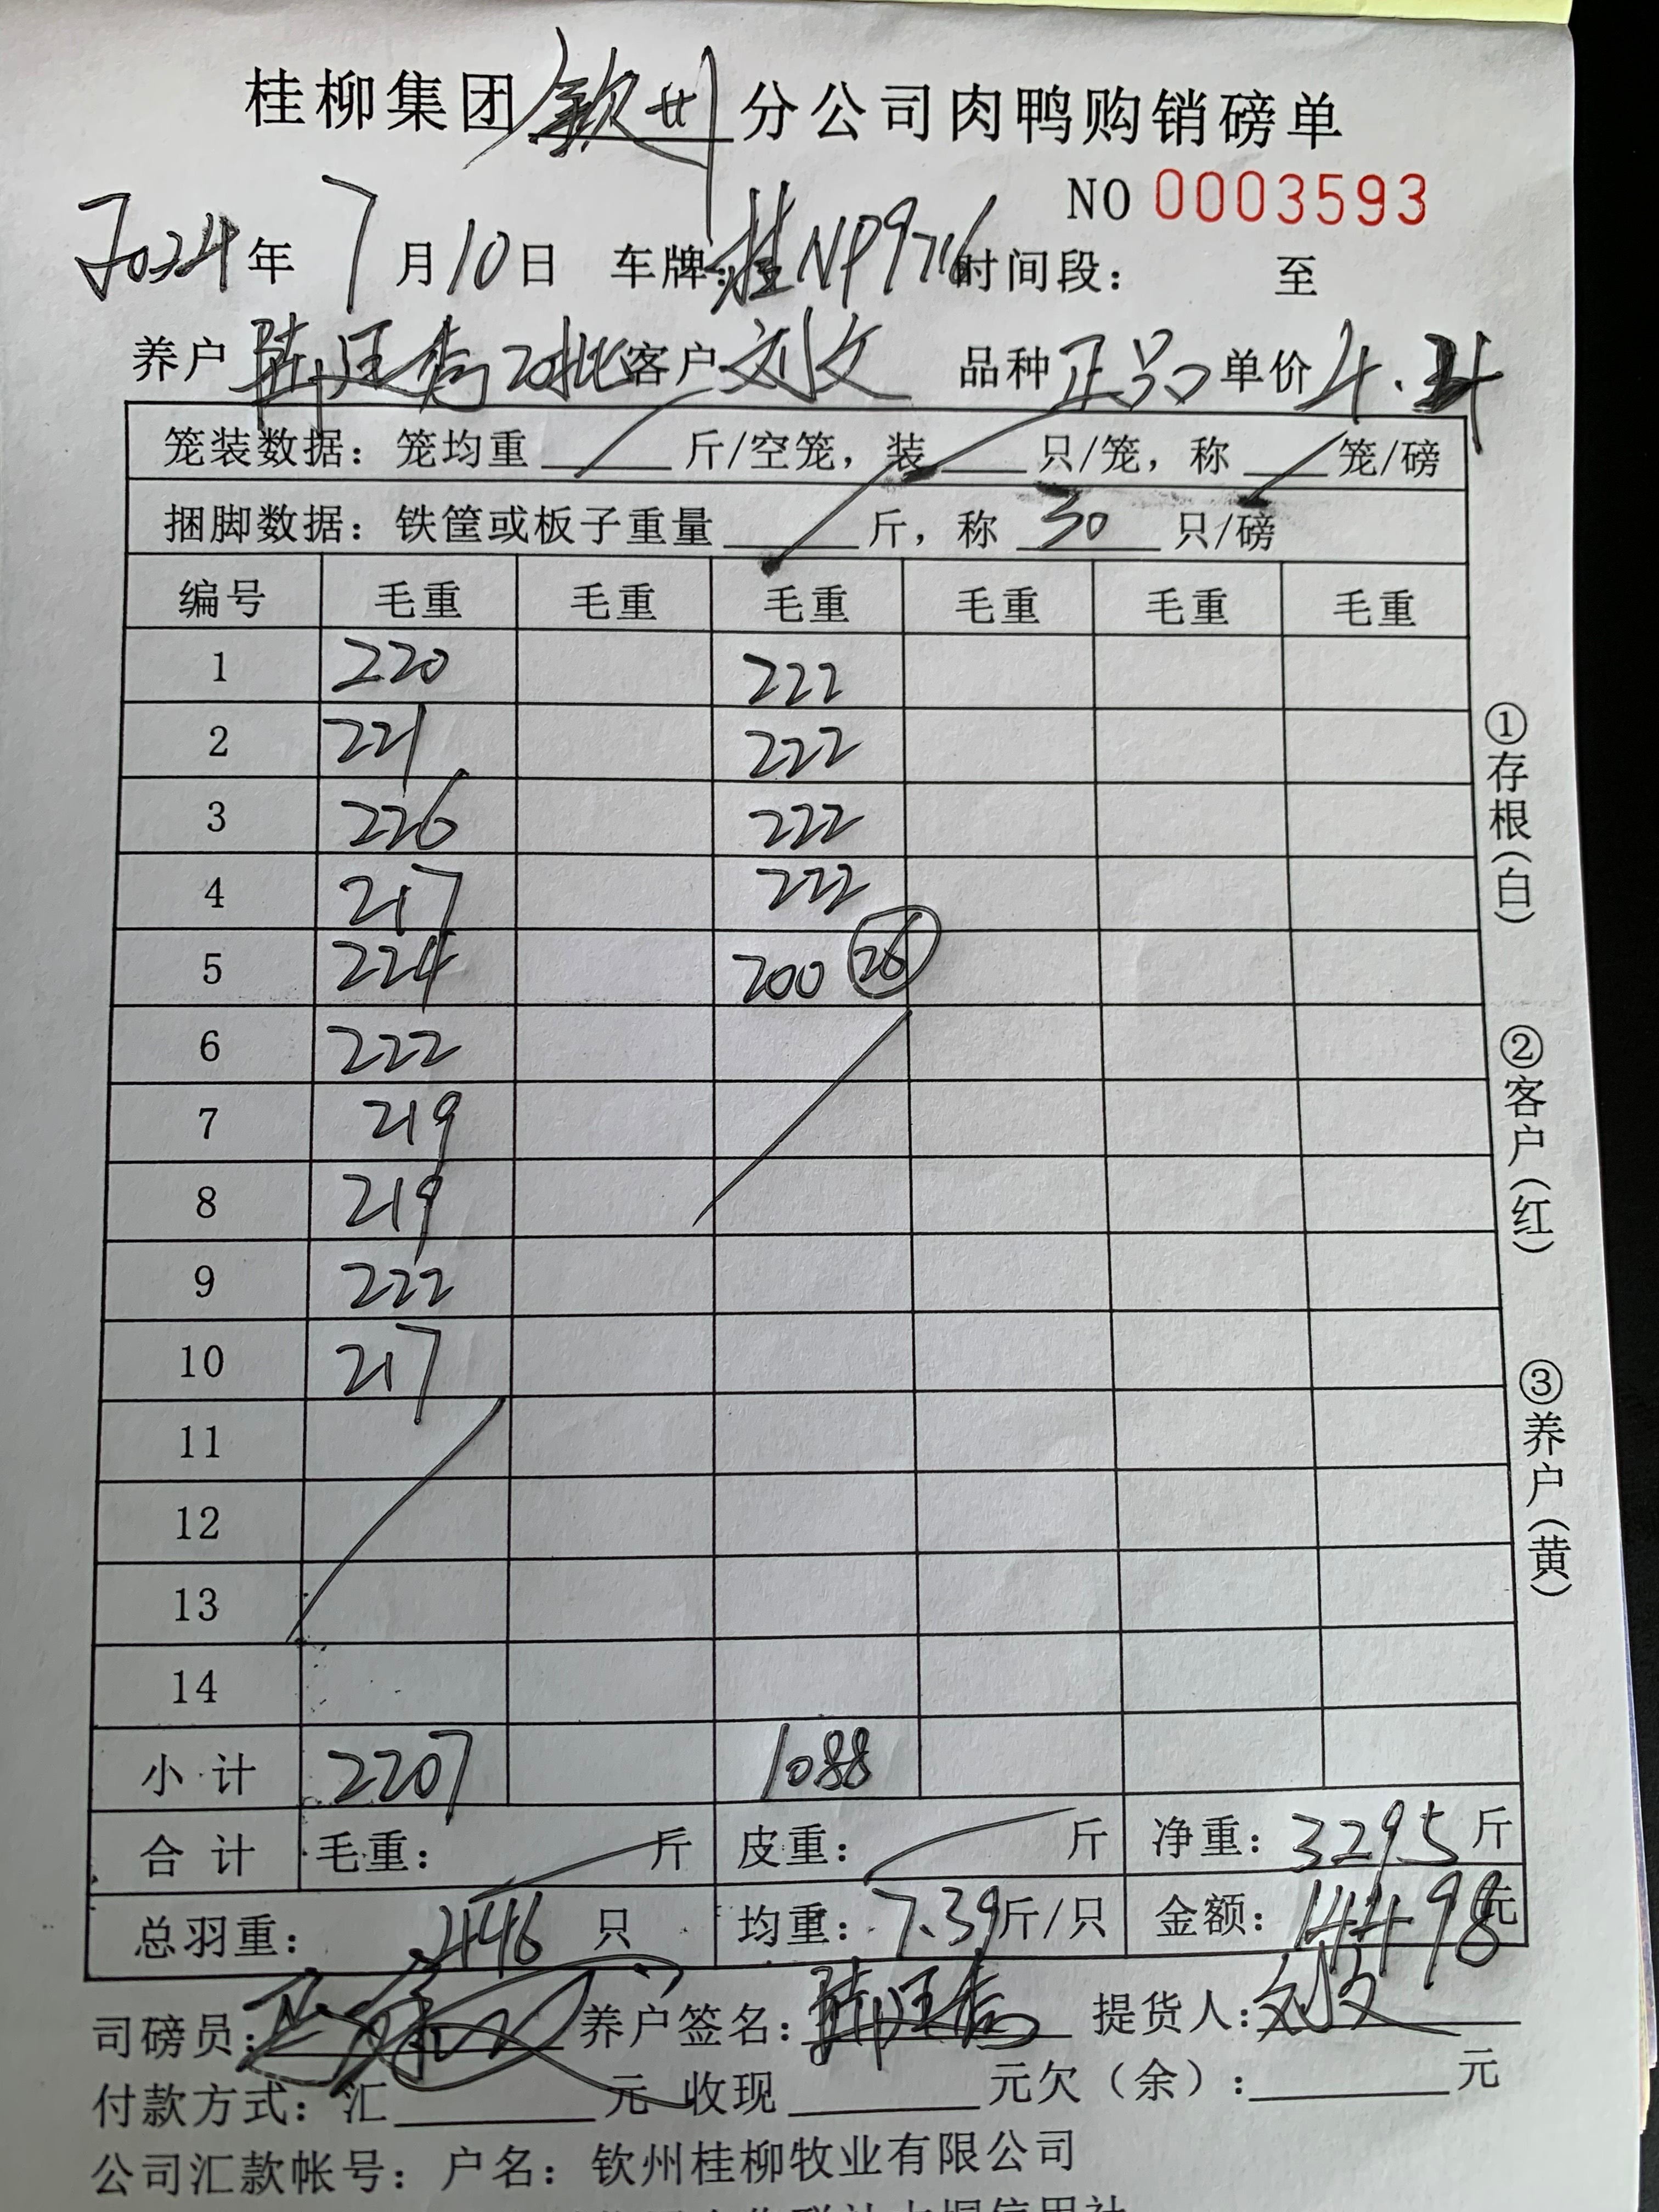 桂柳集团钦州分公司肉鸭购销磅单
NO 0003593
2024年 7月10日 车牌:桂NP9716 时间段: 至
养户 20批 客户 刘文 品种 正品 单价 4.
笼装数据:笼均重 斤/空笼,装 只/笼,称 笼/磅
捆脚数据:铁筐或板子重量 斤,称 30 只/磅
编号 毛重 毛重 毛重 毛重 毛重 毛重
1 220 222
2 221 222
3 226 222
4 217 222
5 224 200 26
6 222
7 219
8 219
9 222
10 217
11
12
13
14
小计 2207 1088
合计 毛重: 斤 皮重: 斤 净重:3295斤
总羽重: 446 只 均重:7.39斤/只 金额:14498元
司磅员: 养户签名: 提货人:刘文
付款方式:汇 元 收现 元欠(余): 元
公司汇款帐号:户名:钦州桂柳牧业有限公司
①存根(白)
②客户(红)
③养户(黄)